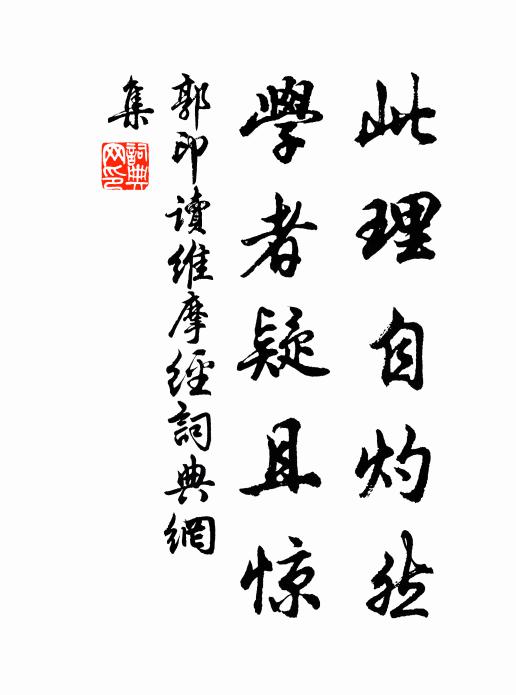 此理自灼然
學者疑且惊
郭印讀維摩經詞典網
集
詞典
网印